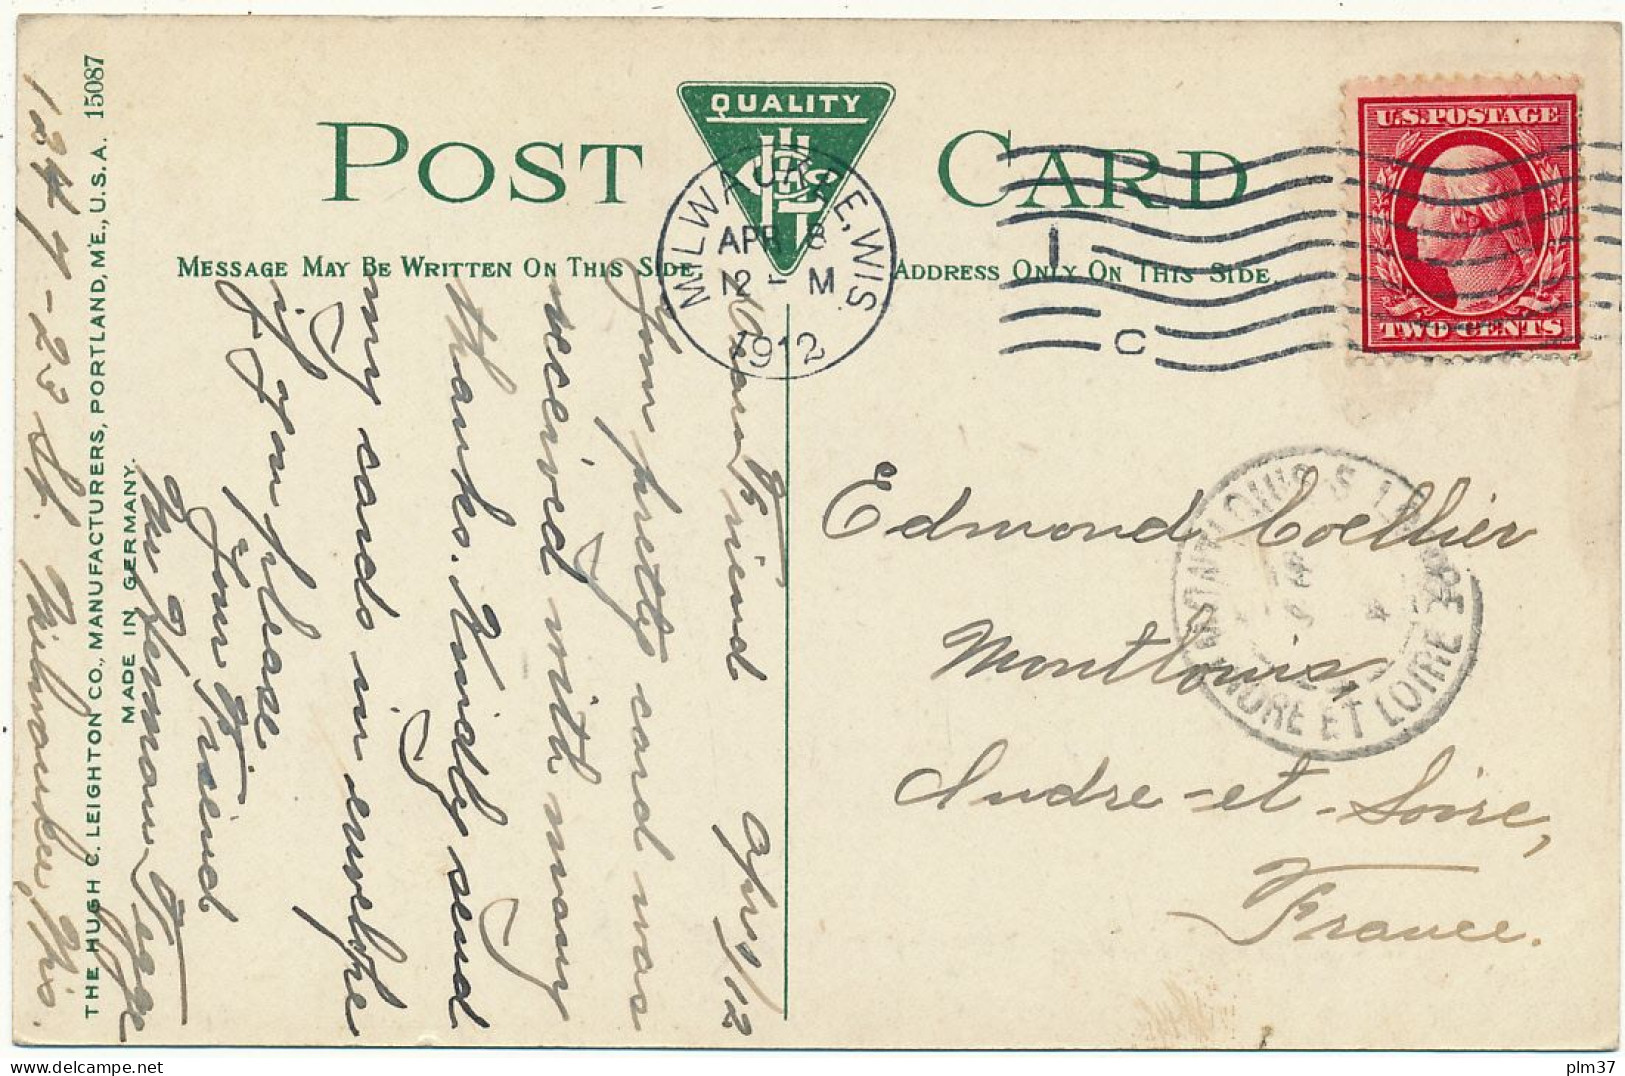 POST CARD
QUALITY
MESSAGE MAY BE WRITTEN ON THIS SIDE
ADDRESS ONLY ON THIS SIDE
MILWAUKEE, WIS.
APR 8
12 - M
1912
C
U.S. POSTAGE
TWO CENTS
MONTLOUIS S LOIRE
INDRE ET LOIRE
Edmond Coellier
Montlouis,
Andre-et-Loire,
France.
friend Apr 7/12
Your pretty card was
received with many
thanks. Kindly send
my cards in envelope
if you please.
Your Friend
Mrs Herman
1247-23 St. Milwaukee, Wis.
THE HUGH C. LEIGHTON CO., MANUFACTURERS, PORTLAND, ME., U.S.A. 15087
MADE IN GERMANY.
plm37